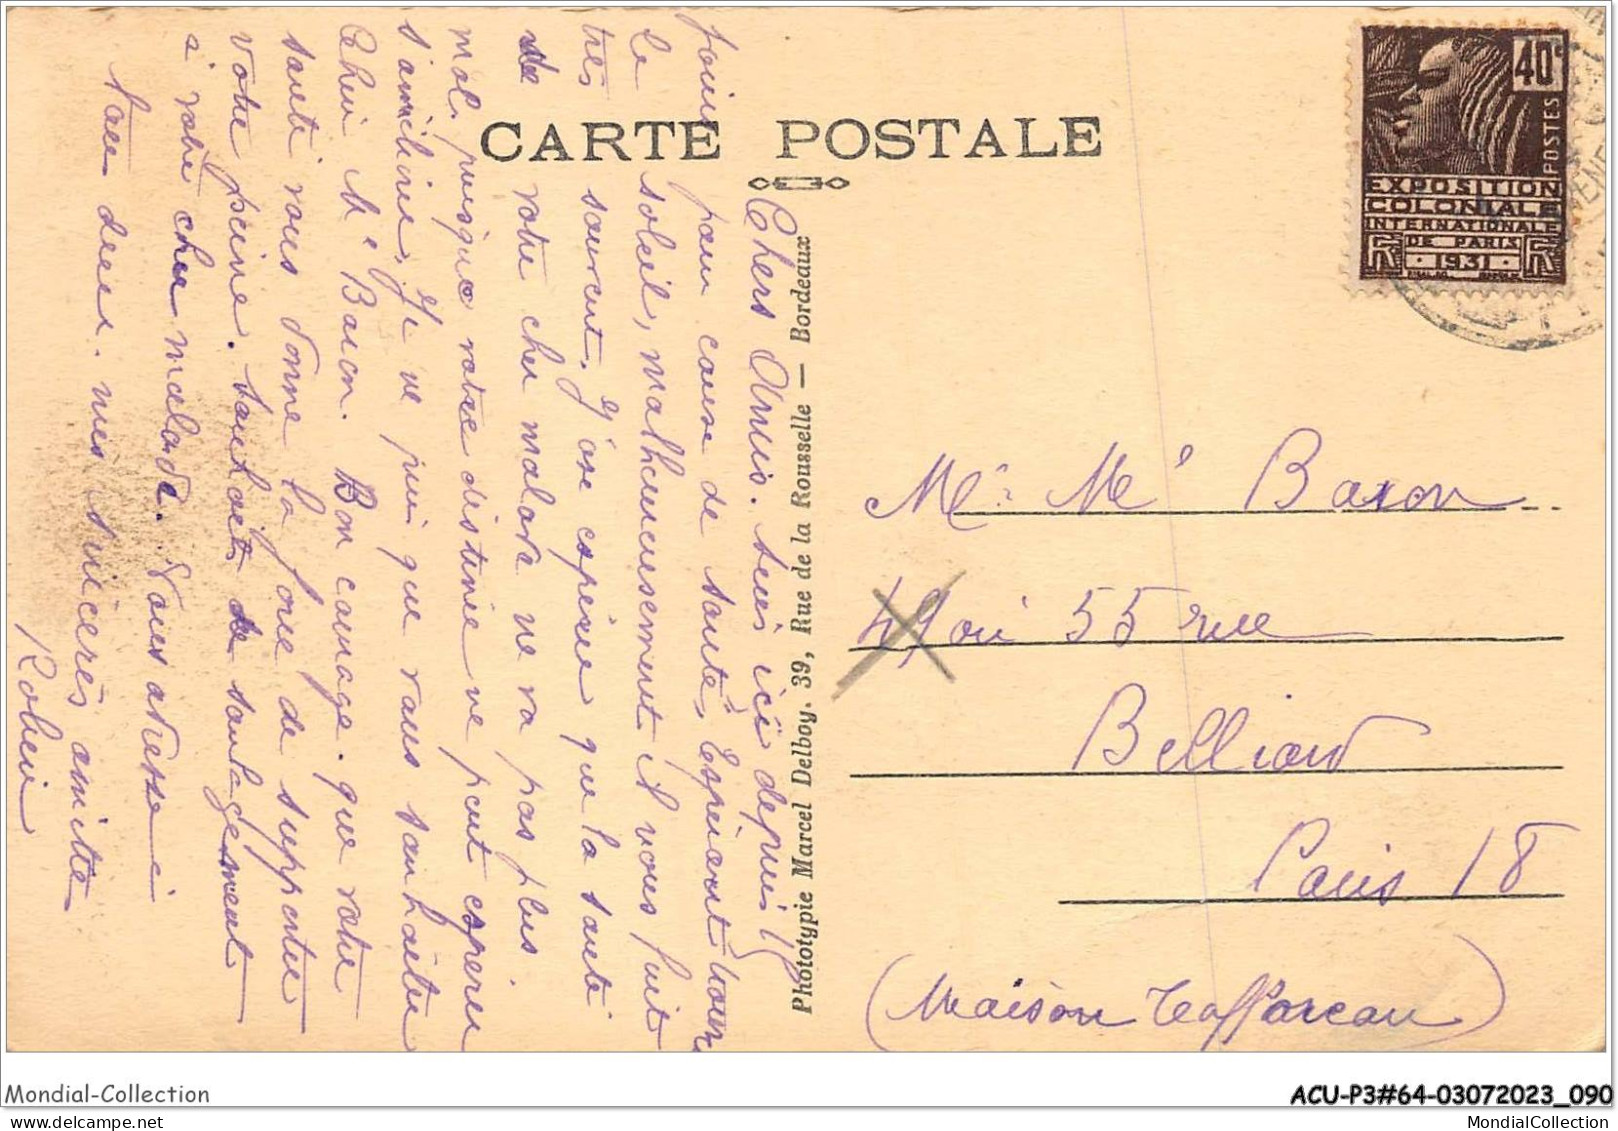 CARTE POSTALE
40c
POSTES
EXPOSITION
COLONIALE
INTERNATIONALE
DE PARIS
1931
RF
Phototypie Marcel Delboy. 39, Rue de la Rousselle — Bordeaux
Chers Amis. suis ici depuis 15
jours pour cause de santé, Espérant trouver
le soleil, malheureusement il nous fuit
très souvent. J'ose espérer que la santé
de votre cher malade ne va pas plus
mal, puisque votre destinée ne peut espérer
s'améliorer, Je ne puis que vous souhaiter
Cher Me Baron. Bon courage. que votre
santé vous donne la force de supporter
votre peine. Souhaits de soulagement
à votre cher malade. Vous adresse
tous deux. mes sincères amitiés
Robin
Mr Me Baron
49 ou 55 rue
Belliard
Paris 18
(Maison Taffoureau)
Mondial-Collection
ACU-P3#64-03072023_090
MondialCollection.com